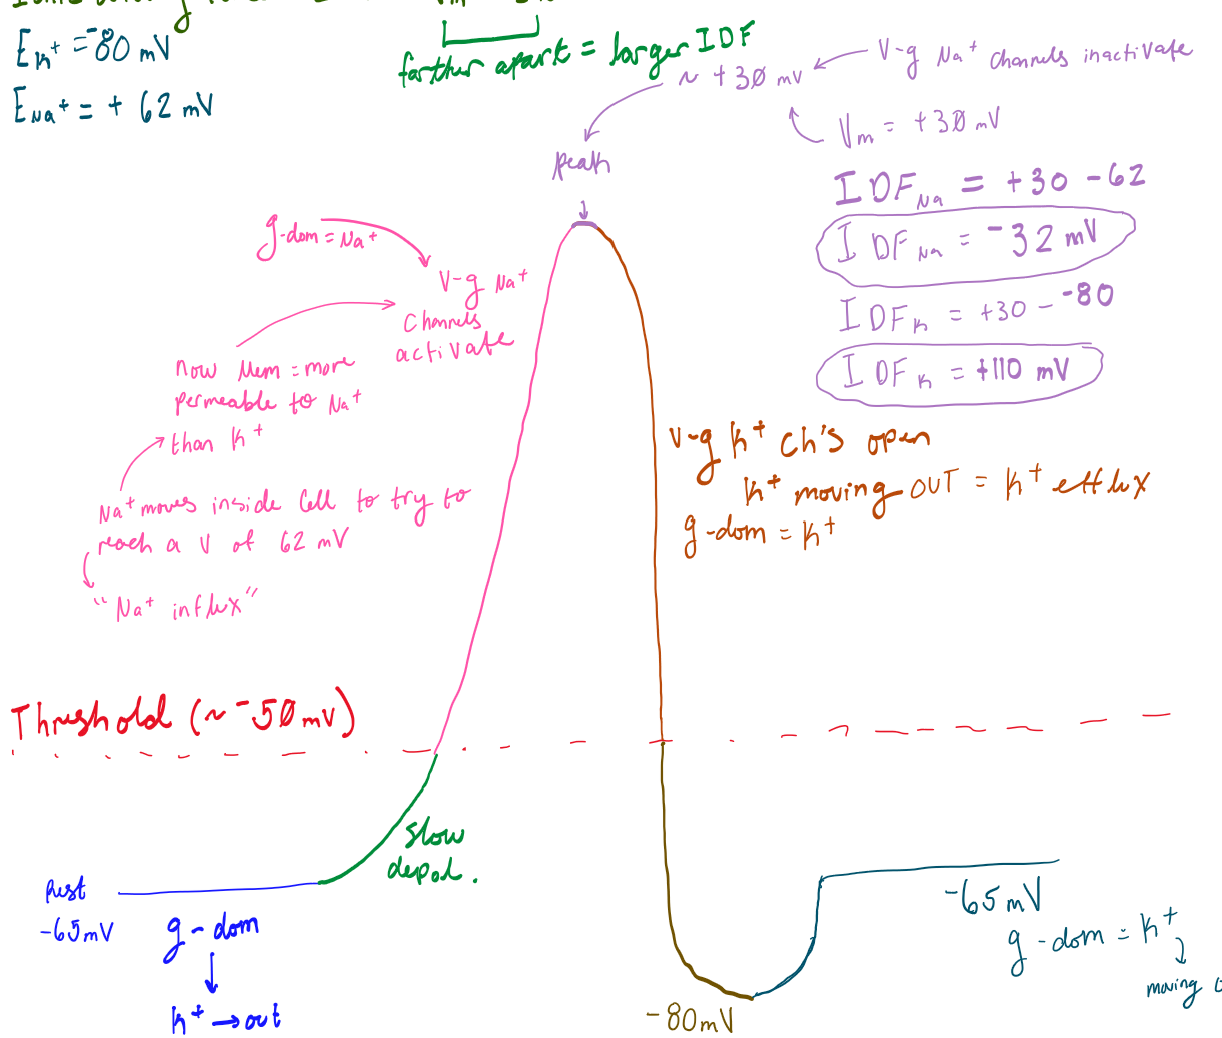 E K+ = -80 mV
E Na+ = + 62 mV
farther apart = larger IDF
~ +30 mV
V-g Na+ channels inactivate
Vm = +30 mV
peak
IDF Na = +30 -62
IDF Na = -32 mV
IDF K = +30 - -80
IDF K = +110 mV
g-dom = Na+
V-g Na+
Channels
activate
now Mem = more
permeable to Na+
than K+
Na+ moves inside Cell to try to
reach a V of 62 mV
"Na+ influx"
V-g K+ Ch's open
K+ moving OUT = K+ efflux
g-dom = K+
Threshold (~ -50 mV)
Slow
depol.
Rest
-65 mV
g-dom
K+ → out
-80 mV
-65 mV
g-dom = K+
moving